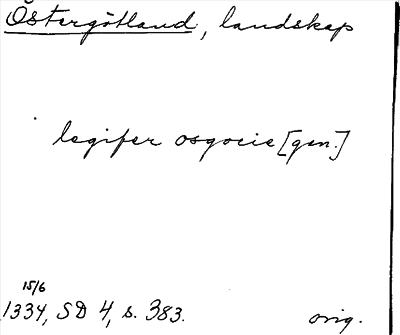 Östergötland, landskap
legifer osgocie [gen.]
15/6
1334, SD 4, s. 383.
orig.